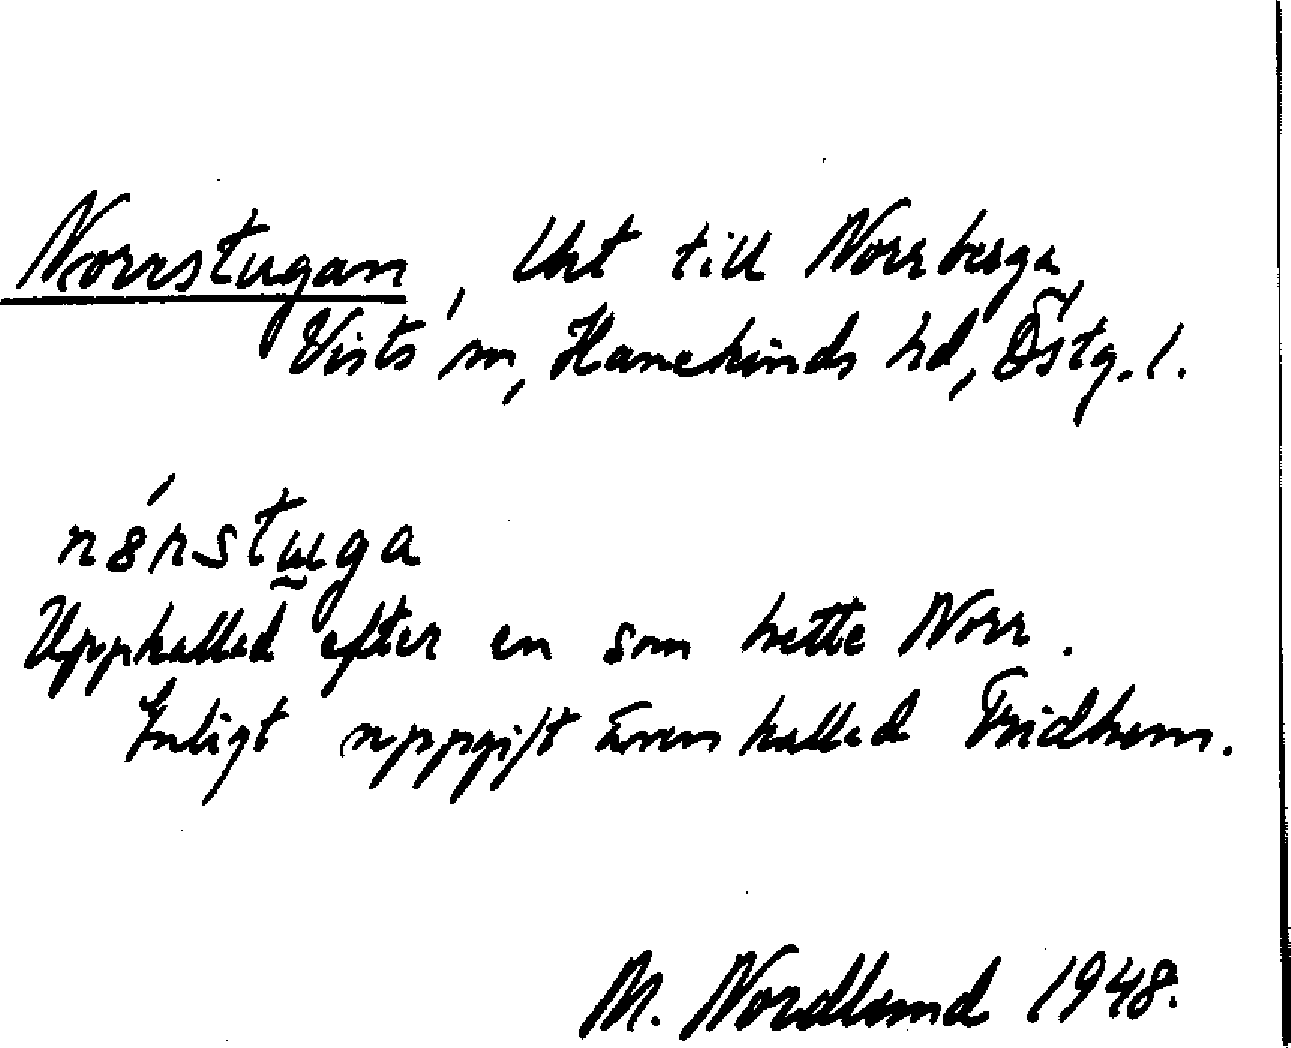 Norrstugan, Uht till Norrberga,
Vists sn, Hanekinds hd, Östg. l.
nórstuga
Uppkallad efter en som hette Norr.
Enligt uppgift även kallad Fridhem.
M. Nordlund 1948.